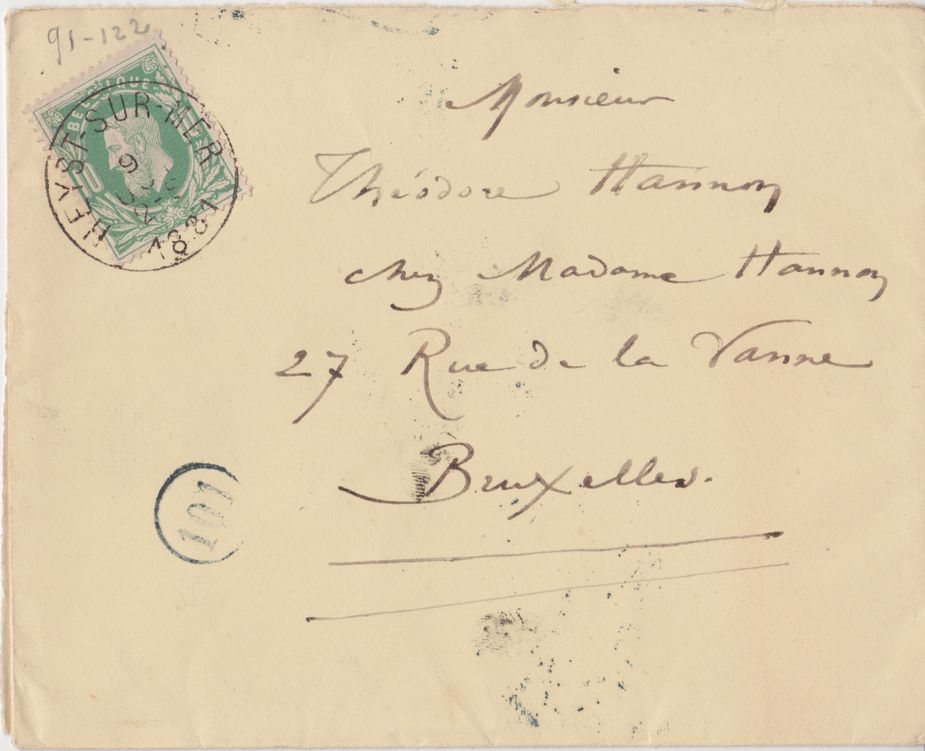 91-122
BELGIQUE
HEYST-SUR-MER
9
1881
Monsieur
Théodore Hannon
chez Madame Hannon
27 Rue de la Vanne
Bruxelles.
101